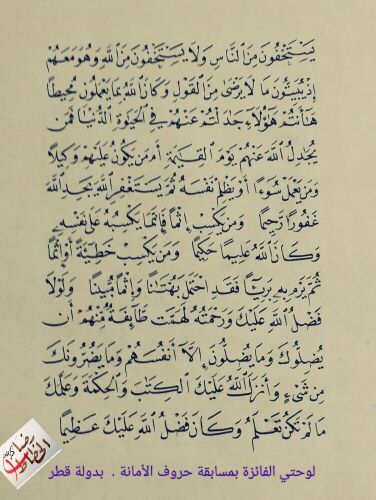 يَسْتَخْفُونَ مِنَ النَّاسِ وَلَا يَسْتَخْفُونَ مِنَ اللَّهِ وَهُوَ مَعَهُمْ
إِذْ يُبَيِّتُونَ مَا لَا يَرْضَىٰ مِنَ الْقَوْلِ وَكَانَ اللَّهُ بِمَا يَعْمَلُونَ مُحِيطًا
هَٰأَنتُمْ هَٰؤُلَاءِ جَٰدَلْتُمْ عَنْهُمْ فِي الْحَيَوٰةِ الدُّنْيَا فَمَن
يُجَٰدِلُ اللَّهَ عَنْهُمْ يَوْمَ الْقِيَٰمَةِ أَم مَّن يَكُونُ عَلَيْهِمْ وَكِيلًا
وَمَن يَعْمَلْ سُوءًا أَوْ يَظْلِمْ نَفْسَهُ ثُمَّ يَسْتَغْفِرِ اللَّهَ يَجِدِ اللَّهَ
غَفُورًا رَّحِيمًا وَمَن يَكْسِبْ إِثْمًا فَإِنَّمَا يَكْسِبُهُ عَلَىٰ نَفْسِهِ
وَكَانَ اللَّهُ عَلِيمًا حَكِيمًا وَمَن يَكْسِبْ خَطِيئَةً أَوْ إِثْمًا
ثُمَّ يَرْمِ بِهِ بَرِيئًا فَقَدِ احْتَمَلَ بُهْتَٰنًا وَإِثْمًا مُّبِينًا وَلَوْلَا
فَضْلُ اللَّهِ عَلَيْكَ وَرَحْمَتُهُ لَهَمَّت طَّائِفَةٌ مِّنْهُمْ أَن
يُضِلُّوكَ وَمَا يُضِلُّونَ إِلَّا أَنفُسَهُمْ وَمَا يَضُرُّونَكَ
مِن شَيْءٍ وَأَنزَلَ اللَّهُ عَلَيْكَ الْكِتَٰبَ وَالْحِكْمَةَ وَعَلَّمَكَ
مَا لَمْ تَكُن تَعْلَمُ وَكَانَ فَضْلُ اللَّهِ عَلَيْكَ عَظِيمًا
لوحتي الفائزة بمسابقة حروف الأمانة . بدولة قطر